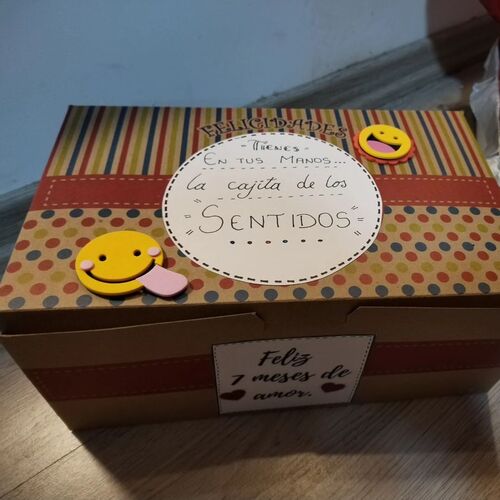 FELICIDADES
- TIENES -
EN TUS MANOS...
la cajita de los
SENTIDOS
Feliz
7 meses de
amor.